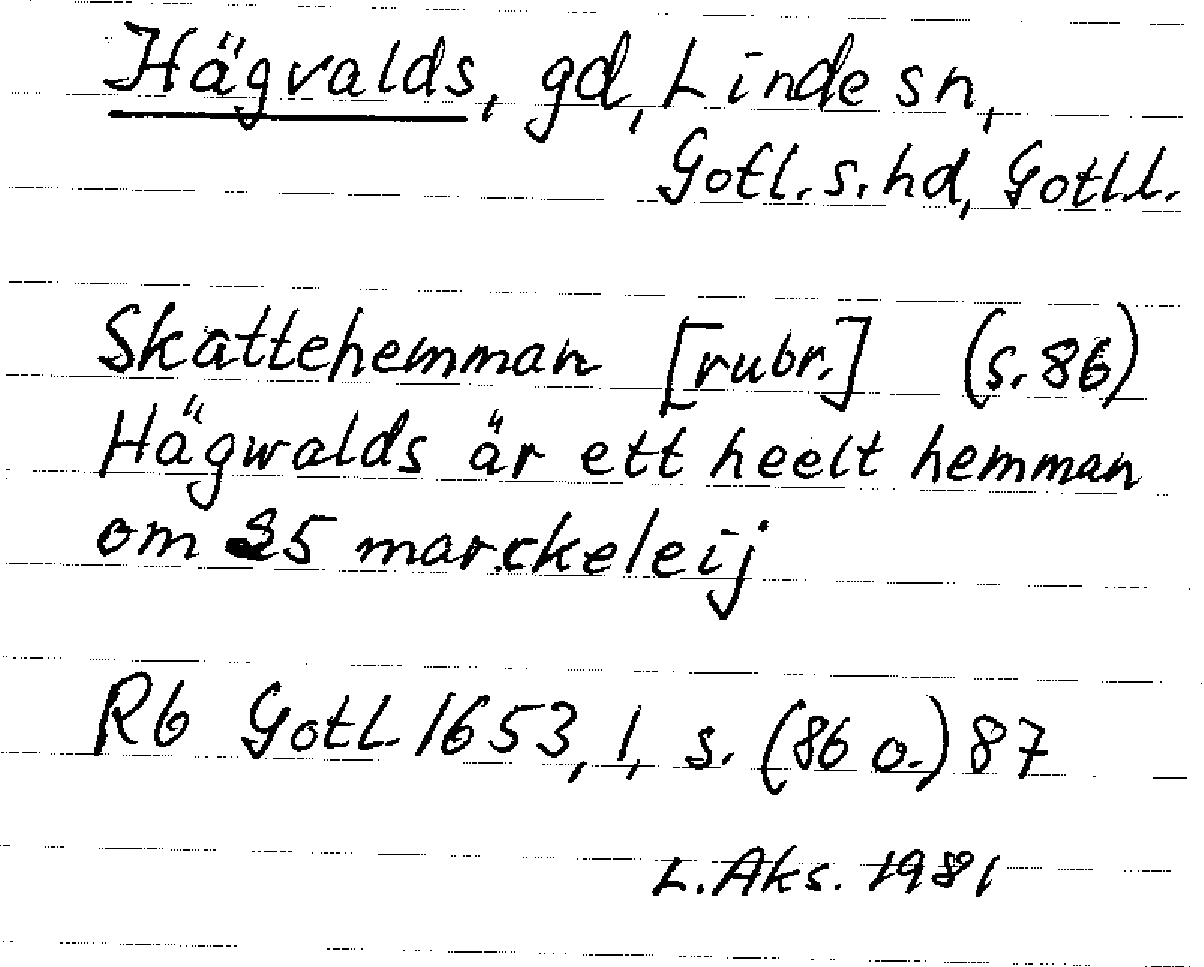 Hägvalds, gd, Linde sn,
Gotl. s. hd, Gotl.l.
Skattehemman [rubr.] (s. 86)
Hägwalds är ett heelt hemman
om 25 marckeleij
Rb Gotl. 1653, 1, s. (86 o.) 87
L. Aks. 1981